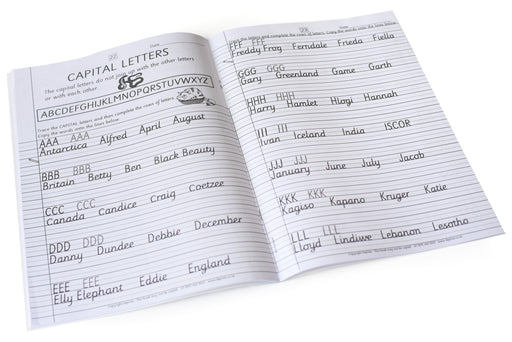 Date
CAPITAL LETTERS
The capital letters do not join up with the other letters
or with each other.
ABCDEFGHIJKLMNOPQRSTUVWXYZ
Trace the CAPITAL letters and then complete the rows of letters.
Copy the words onto the lines below.
AAA AAA
Antarctica Alfred April August
BBB BBB
Britain Betty Ben Black Beauty
CCC CCC
Canada Candice Craig Coetzee
DDD DDD
Danny Dundee Debbie December
EEE EEE
Elly Elephant Eddie England
Date
the letters and complete the rows of letters. Copy the words onto the lines below.
FFF FFF
Freddy Frog Ferndale Frieda Fiella
GGG GGG
Gary Greenland Game Garth
HHH HHH
Harry Hamlet Hlogi Hannah
III III
Ivan Iceland India ISCOR
JJJ JJJ
January June July Jacob
KKK KKK
Kagiso Kapano Kruger Katie
LLL LLL
Lloyd Lindiwe Lebanon Lesotho